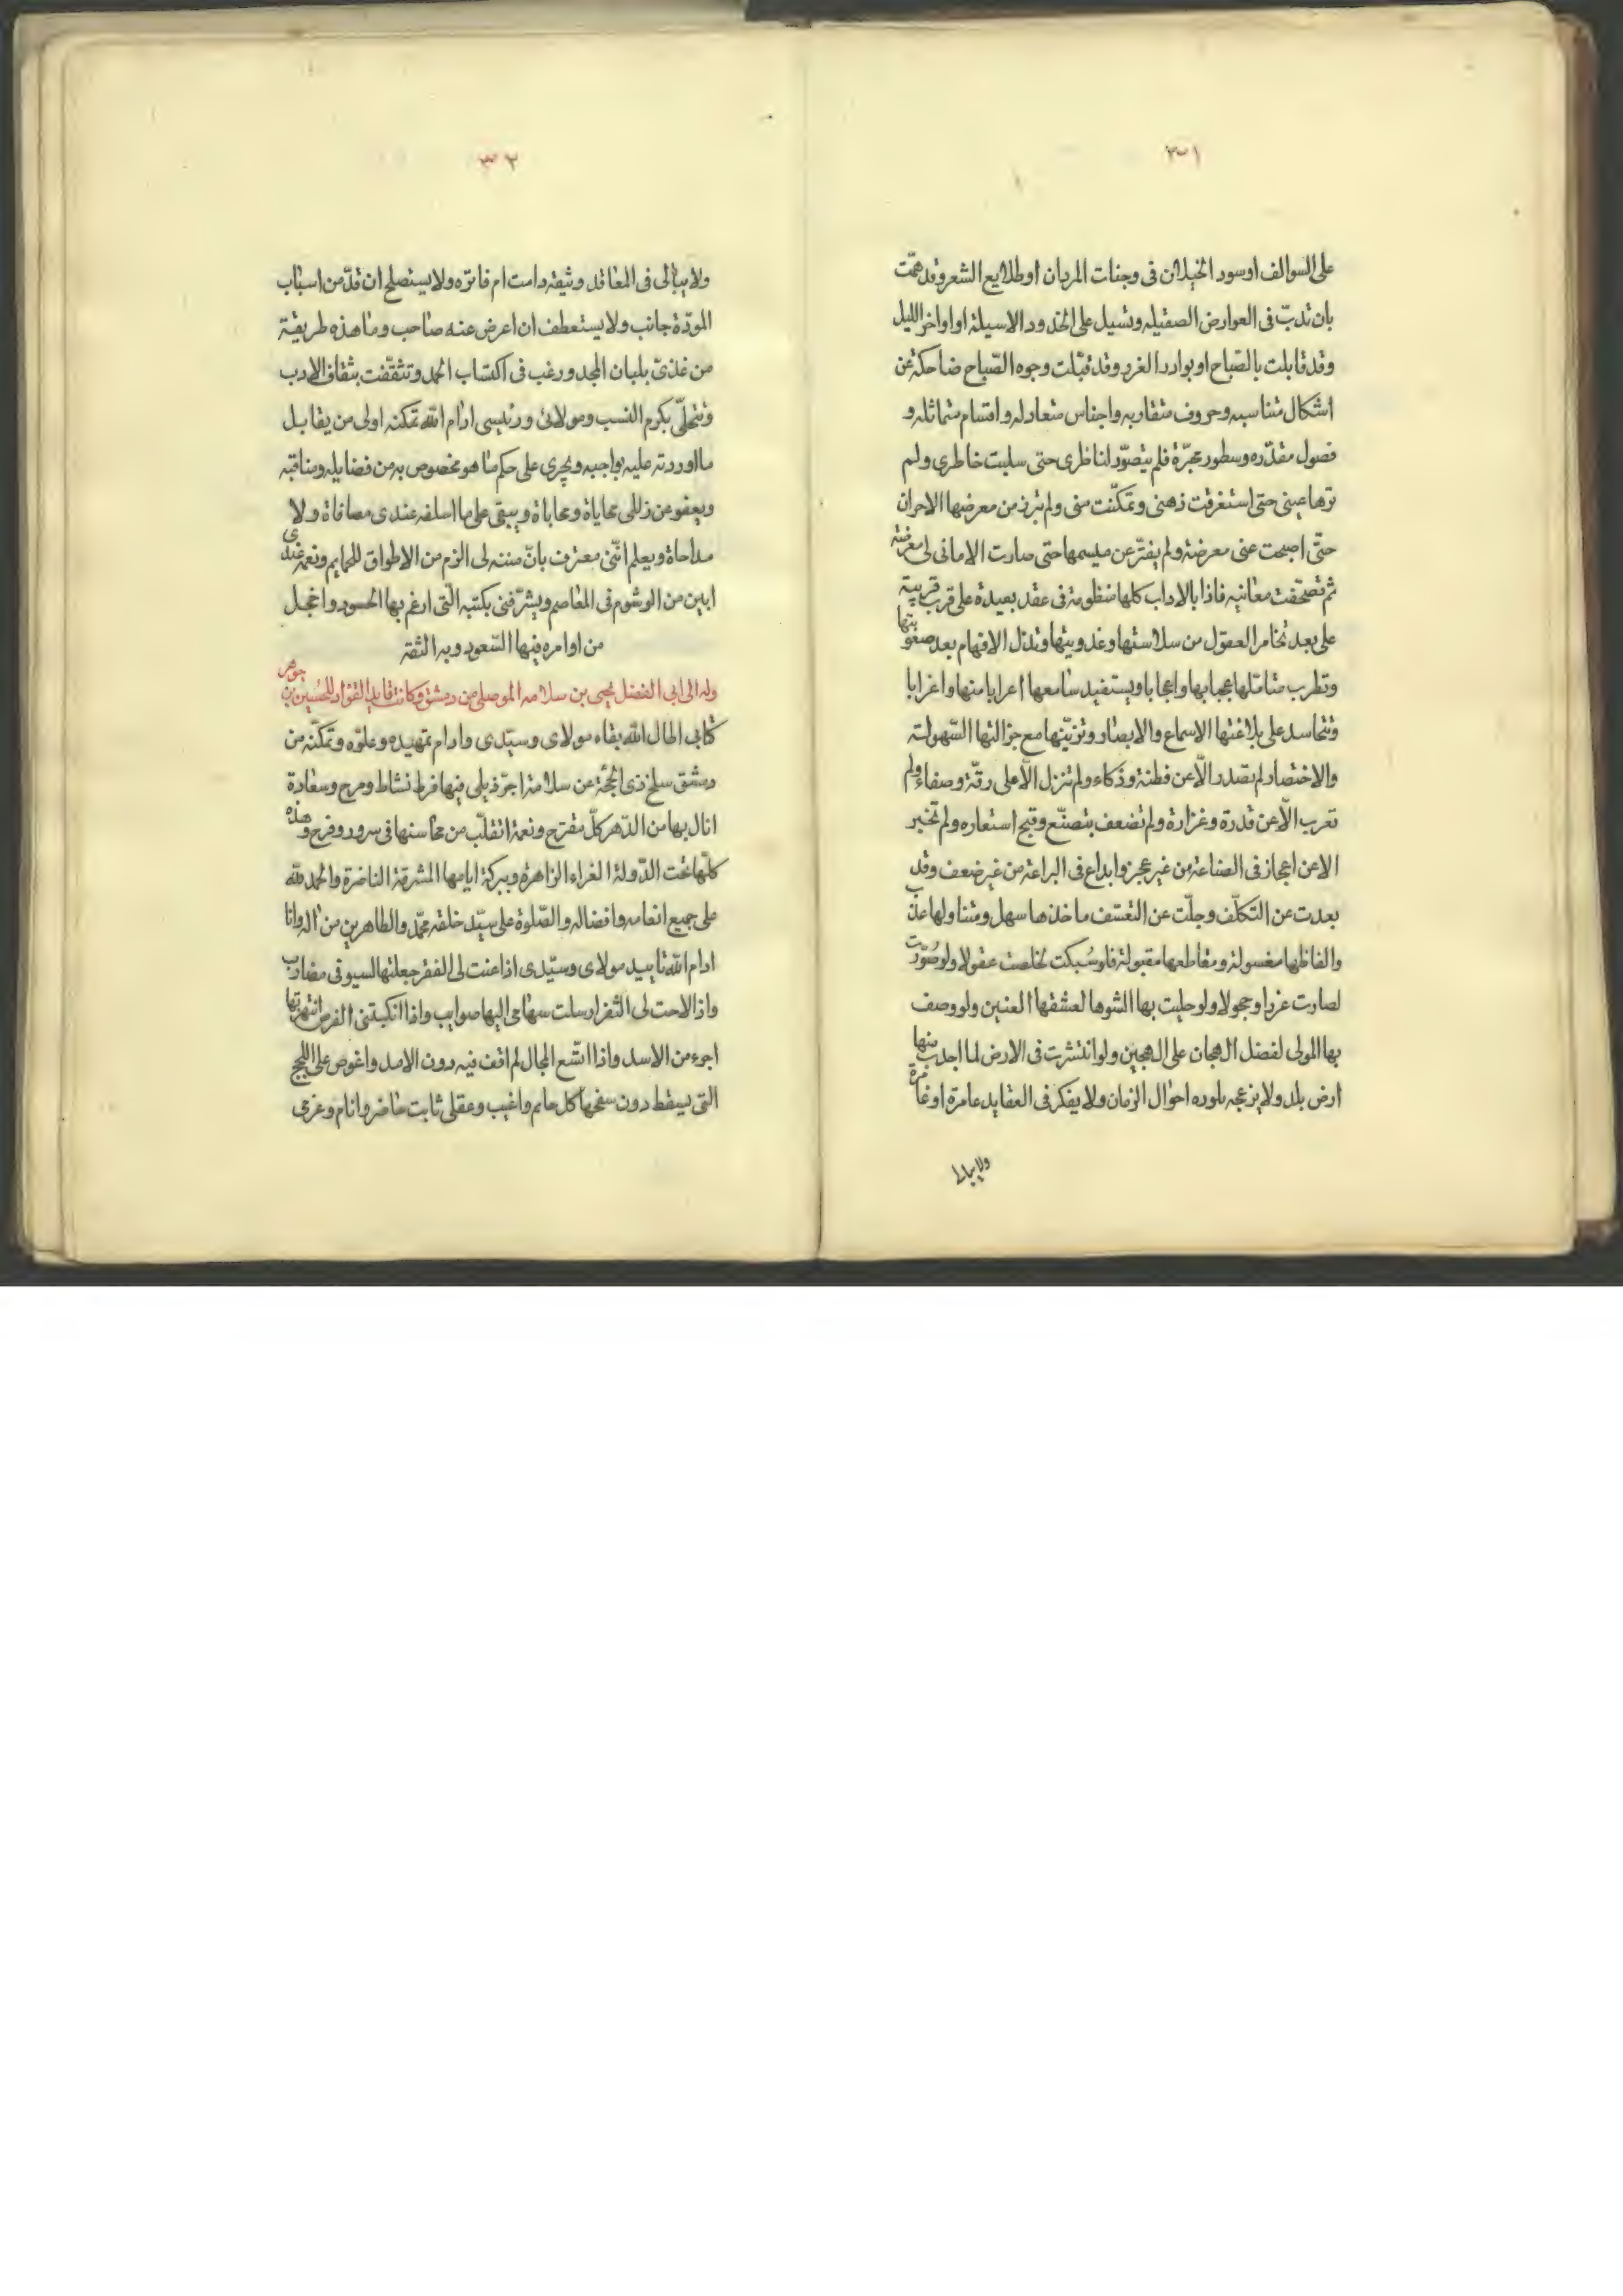 ٣١
على السوالف اوسود الخيلان فى وجنات المردان اوطلايع الشعر وقد همّت
بان تدبّ فى العوارض الصقيله وتسيل على الخدود الاسيلة اواواخر الليل
وقد قابلت بالصّباح او بوادر الغرر وقد قبّلت وجوه الصّباح ضاحكة عن
اشكال متناسبه وحروف متقاربه واجناس متعادله واقسام متماثله و
فصول مقدّره وسطور محرّرة فلم يتصوّر لناظرى حتى سلبت خاطرى ولم
ترها عينى حتى استغرقت ذهنى وتمكّنت منى ولم تبرز من معرضها الاحران
حتّى اصبحت عنى معرضة ولم يفترّ عن مبسمها حتى صارت الامانى لى معرضة
ثم تصحّفت معانيه فاذا بالاداب كلها منظومة فى عقد بعيدة على قرب قريبة
على بعد تخامر العقول من سلاستها وعذوبتها وتذل الافهام بعد صعوبتها
وتطرب متامّلها عجبا بها واعجابا ويستفيد سامعها اعرابا منها واغرابا
وتتحاسد على بلاغتها الاسماع والابصار وتزيّنها مع جزالتها السّهولة
والاختصار لم تصدر الّا عن فطنة وذكاء ولم تنزل الّا على رقّة وصفاء ولم
تعرب الّا عن قدرة وغزارة ولم تضعف بتصنّع وقبح استعاره ولم تخبر
الا عن اعجاز فى الصناعة من غير عجز وابداع فى البراعة من غير ضعف وقد
بعدت عن التكلّف وجلّت عن التعسّف ماخذها سهل ومتناولها عذب
والفاظها مغسولة ومقاطعها مقبولة فلو سُبكت لخلصت عقولا ولو صُوّرت
لصارت غررا وحجولا ولو حليت بها الشوها لعشقها العنين ولو وصف
بها المولى لفضل الهجان على الهجين ولو انتشرت فى الارض لما اجدب منها
ارض بلد ولا يزعجه بلوده احوال الزمان ولا يفكر فى العقايد عامرة او غامرة
ولا يبالى
٣٢
ولا يبالى فى المعاقد وثيقة دامت ام فاتره ولا يستصلح ان قدّ من اسباب
المودّة جانب ولا يستعطف ان اعرض عنه صاحب وما هذه طريقة
من غذىّ بلبان المجد ورغب فى اكتساب الحمد وتثقّفت بثقاف الادب
وتتحلّى بكرم النسب ومولائى ورئيسى ادام الله تمكنه اولى من يقابل
ما اوردته عليه بواجبه ويجرى على حكم ما هو مخصوص به من فضايله ومناقبه
ويعفو عن زللى محاياة ومحاباة ويبقى على ما اسلفه عندى مصافاة ولا
مداحاة ويعلم انّنى معترف بانّ مننه لى الزم من الاطواق للحمايم ونعمه عندى
ابين من الوشوم فى المعاصم ويشرّفنى بكتبه الّتى ارغم بها الحسود واعجل
من اوامره فيها السّعود وبه الثقة
وله الى ابى الفضل يحيى بن سلامه الموصلى من دمشق وكانت قايد القوّاد للحُسين بن جوهر
كتابى اطال الله بقاء مولاى وسيّدى وادام تمهيده وعلوّه وتمكّنه من
دمشق سلخ ذى الحجّة عن سلامة اجرّ ذيلى فيها فرط نشاط ومرح وسعادة
انال بها من الدّهر كلّ مقترح ونعمة اتقلّب من محاسنها فى سرور وفرح وهذه
كلّها تحت الدّولة الغراء الزاهرة وببركة ايامها المشرقة الناضرة والحمد للّه
على جميع انعامه وافضاله والصّلوة على سيّد خلقه محمّد والطاهرين من اله وانا
ادام الله تاييد مولاى وسيّدى اذا عنت لى الفقر جعلتها لسيوفى مضارب
واذا لاحت لى الثغر ارسلت سهامى اليها صوايب واذا انكبتنى الفرص انتهزتها
اجرء من الاسد واذا اتّسع المجال لم اقف فيه دون الامد واغوص على اللجج
التى يسقط دون سفحها كل حايم واغيب وعقلى ثابت حاضر وانام وعزمى